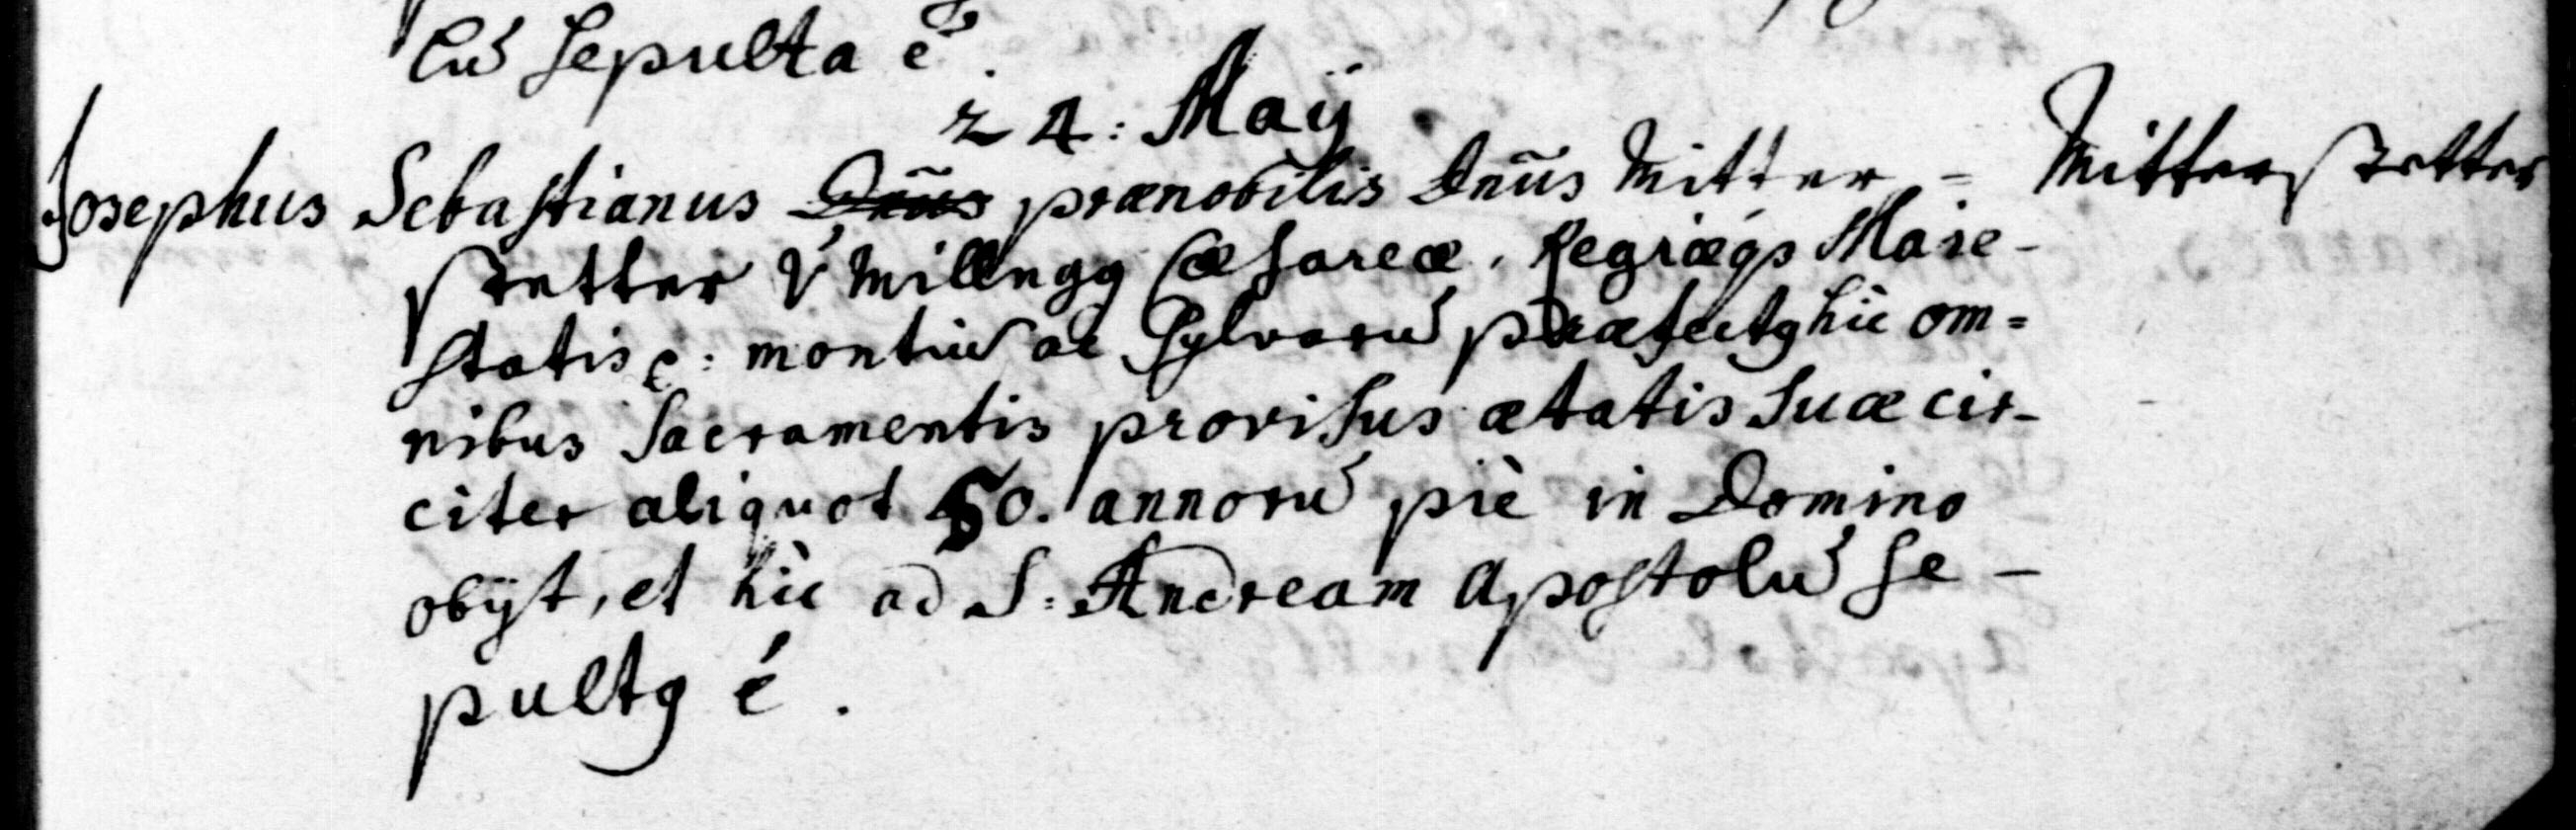 lũ sepulta ẽ.
24: Maÿ
Josephus Sebastianus D̃nus prænobilis Dñus Mitter= Mitterstetter
stetter V Millegg Cæsareæ, Regiæq3 Maie-
statis c: montiũ ac Sylvarũ præfectꝯ hìc om=
nibus Sacramentis provisus ætatis suæ cir-
citer aliquot 50. annorũ piè in Domino
obÿt, et hìc ad S: Andream Apostolũ se-
pultꝯ ẽ.